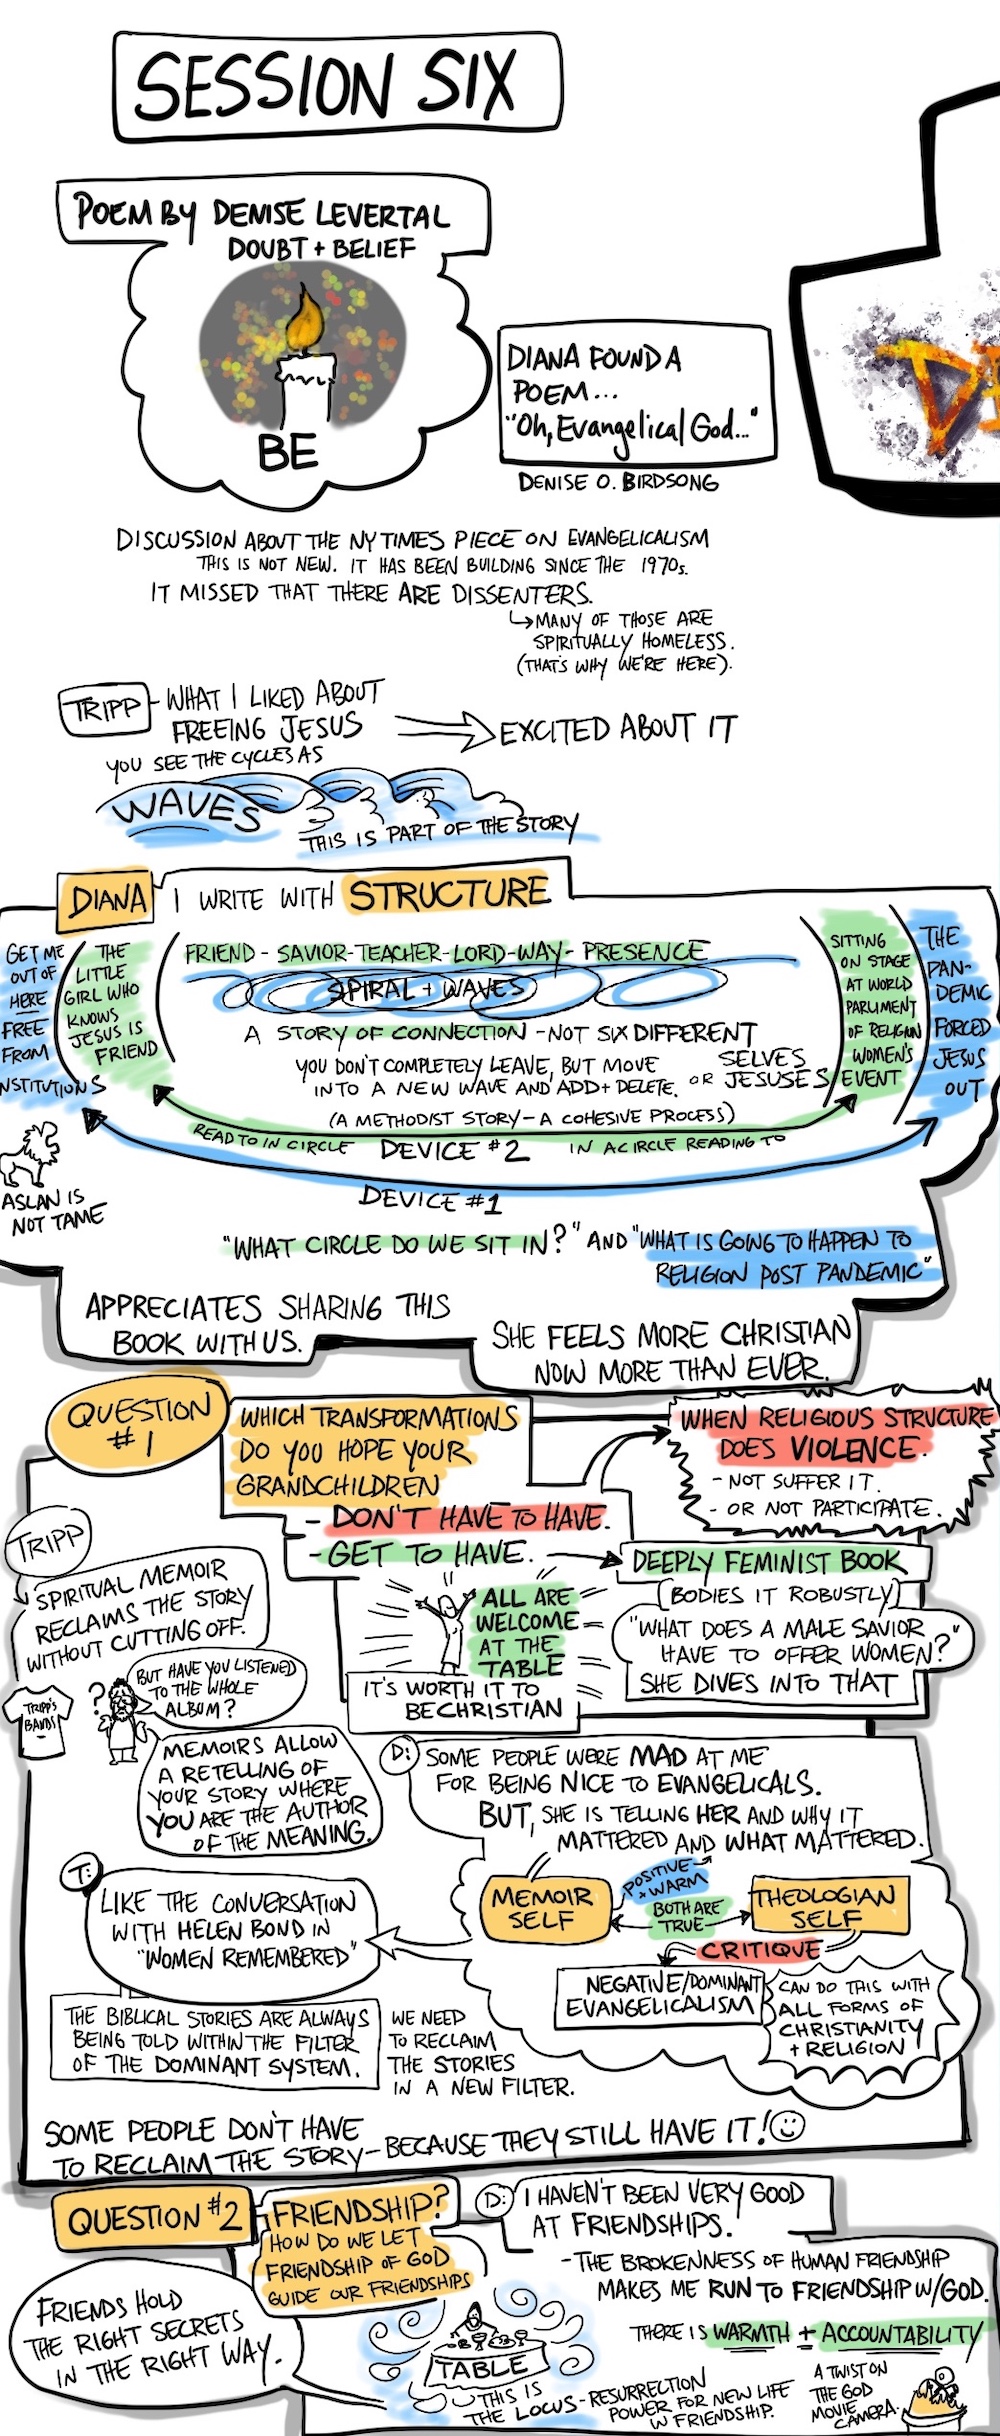 SESSION SIX
POEM BY DENISE LEVERTAL
DOUBT + BELIEF
BE
DIANA FOUND A
POEM...
"Oh, Evangelical God..."
DENISE O. BIRDSONG
DISCUSSION ABOUT THE NY TIMES PIECE ON EVANGELICALISM
THIS IS NOT NEW. IT HAS BEEN BUILDING SINCE THE 1970s.
IT MISSED THAT THERE ARE DISSENTERS.
MANY OF THOSE ARE
SPIRITUALLY HOMELESS.
(THAT'S WHY WE'RE HERE).
TRIPP - WHAT I LIKED ABOUT
FREEING JESUS
EXCITED ABOUT IT
YOU SEE THE CYCLES AS
WAVES
THIS IS PART OF THE STORY
DIANA I WRITE WITH STRUCTURE
GET ME
OUT OF
HERE
FREE
FROM
NSTITUTIONS
THE
LITTLE
GIRL WHO
KNOWS
JESUS IS
FRIEND
FRIEND - SAVIOR - TEACHER - LORD - WAY - PRESENCE
SPIRAL + WAVES
A STORY OF CONNECTION - NOT SIX DIFFERENT
SELVES
OR JESUSES
YOU DON'T COMPLETELY LEAVE, BUT MOVE
INTO A NEW WAVE AND ADD + DELETE.
(A METHODIST STORY - A COHESIVE PROCESS)
SITTING
ON STAGE
AT WORLD
PARLIMENT
OF RELIGION
WOMEN'S
EVENT
THE
PAN-
DEMIC
FORCED
JESUS
OUT
READ TO IN CIRCLE
DEVICE #2
IN A CIRCLE READING TO
ASLAN IS
NOT TAME
DEVICE #1
"WHAT CIRCLE DO WE SIT IN?" AND "WHAT IS GOING TO HAPPEN TO
RELIGION POST PANDEMIC"
APPRECIATES SHARING THIS
BOOK WITH US.
SHE FEELS MORE CHRISTIAN
NOW MORE THAN EVER.
QUESTION
#1
WHICH TRANSFORMATIONS
DO YOU HOPE YOUR
GRANDCHILDREN
- DON'T HAVE TO HAVE.
- GET TO HAVE.
WHEN RELIGIOUS STRUCTURE
DOES VIOLENCE.
- NOT SUFFER IT.
- OR NOT PARTICIPATE.
DEEPLY FEMINIST BOOK
BODIES IT ROBUSTLY
"WHAT DOES A MALE SAVIOR
HAVE TO OFFER WOMEN?"
SHE DIVES INTO THAT
ALL ARE
WELCOME
AT THE
TABLE
IT'S WORTH IT TO
BE CHRISTIAN
TRIPP
SPIRITUAL MEMOIR
RECLAIMS THE STORY
WITHOUT CUTTING OFF.
BUT HAVE YOU LISTENED
TO THE WHOLE
ALBUM?
?
TRIPP'S
BANDS
MEMOIRS ALLOW
A RETELLING OF
YOUR STORY WHERE
YOU ARE THE AUTHOR
OF THE MEANING.
D: SOME PEOPLE WERE MAD AT ME
FOR BEING NICE TO EVANGELICALS.
BUT, SHE IS TELLING HER AND WHY IT
MATTERED AND WHAT MATTERED.
MEMOIR
SELF
POSITIVE
+ WARM
BOTH ARE
TRUE
THEOLOGIAN
SELF
CRITIQUE
NEGATIVE/DOMINANT
EVANGELICALISM
CAN DO THIS WITH
ALL FORMS OF
CHRISTIANITY
+ RELIGION
T:
LIKE THE CONVERSATION
WITH HELEN BOND IN
"WOMEN REMEMBERED"
THE BIBLICAL STORIES ARE ALWAYS
BEING TOLD WITHIN THE FILTER
OF THE DOMINANT SYSTEM.
WE NEED
TO RECLAIM
THE STORIES
IN A NEW FILTER.
SOME PEOPLE DON'T HAVE
TO RECLAIM THE STORY - BECAUSE THEY STILL HAVE IT!
QUESTION #2
FRIENDSHIP?
HOW DO WE LET
FRIENDSHIP OF GOD
GUIDE OUR FRIENDSHIPS
D: I HAVEN'T BEEN VERY GOOD
AT FRIENDSHIPS.
- THE BROKENNESS OF HUMAN FRIENDSHIP
MAKES ME RUN TO FRIENDSHIP W/GOD.
THERE IS WARMTH + ACCOUNTABILITY
FRIENDS HOLD
THE RIGHT SECRETS
IN THE RIGHT WAY.
TABLE
THIS IS
THE LOCUS - RESURRECTION
POWER FOR NEW LIFE
W FRIENDSHIP.
A TWIST ON
THE GOD
MOVIE
CAMERA.